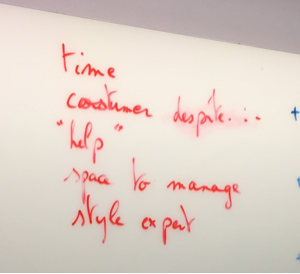 time
costumer despite...
"help"
space to manage
style expert